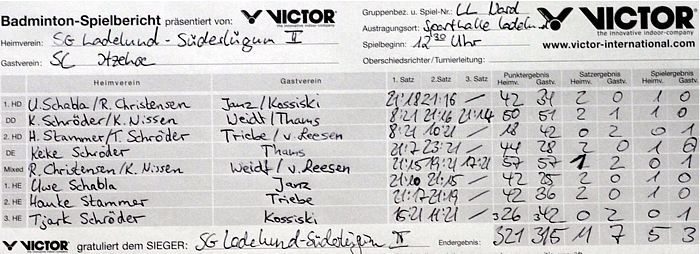 Badminton-Spielbericht präsentiert von: VICTOR the innovative indoor-company
Gruppenbez. u. Spiel-Nr.: LL Nord
VICTOR the innovative indoor-company
Heimverein: SG Ladelund-Süderlügum II
Austragungsort: Sporthalle Ladelund
Gastverein: SC Itzehoe
Spielbeginn: 12:30 Uhr
www.victor-international.com
Oberschiedsrichter/Turnierleitung:
Heimverein Gastverein 1. Satz 2. Satz 3. Satz Punktergebn. Heimv. Gastv. Satzergebn. Heimv. Gastv. Spielergebn. Heimv. Gastv.
1. HD U. Schabla/R. Christensen Janz/Kossiski 21:18 21:16 / 42 34 2 0 1 0
DD K. Schröder/K. Nissen Weidt/Thams 8:21 21:16 21:14 50 51 2 1 1 0
2. HD H. Stammer/T. Schröder Triebe/v. Leesen 8:21 10:21 / 18 42 0 2 0 1
DE Keike Schröder Thams 21:7 23:21 / 44 28 2 0 1 0
Mixed R. Christensen/K. Nissen Weidt/v. Leesen 21:15 19:21 17:21 57 57 1 2 0 1
1. HE Uwe Schabla Janz 21:10 21:15 / 42 25 2 0 1 0
2. HE Hauke Stammer Triebe 21:17 21:19 / 42 36 2 0 1 0
3. HE Tjark Schröder Kossiski 15:21 11:21 / 26 42 0 2 0 1
VICTOR gratuliert dem SIEGER: SG Ladelund-Süderlügum II Endergebnis: 321 315 11 7 5 3